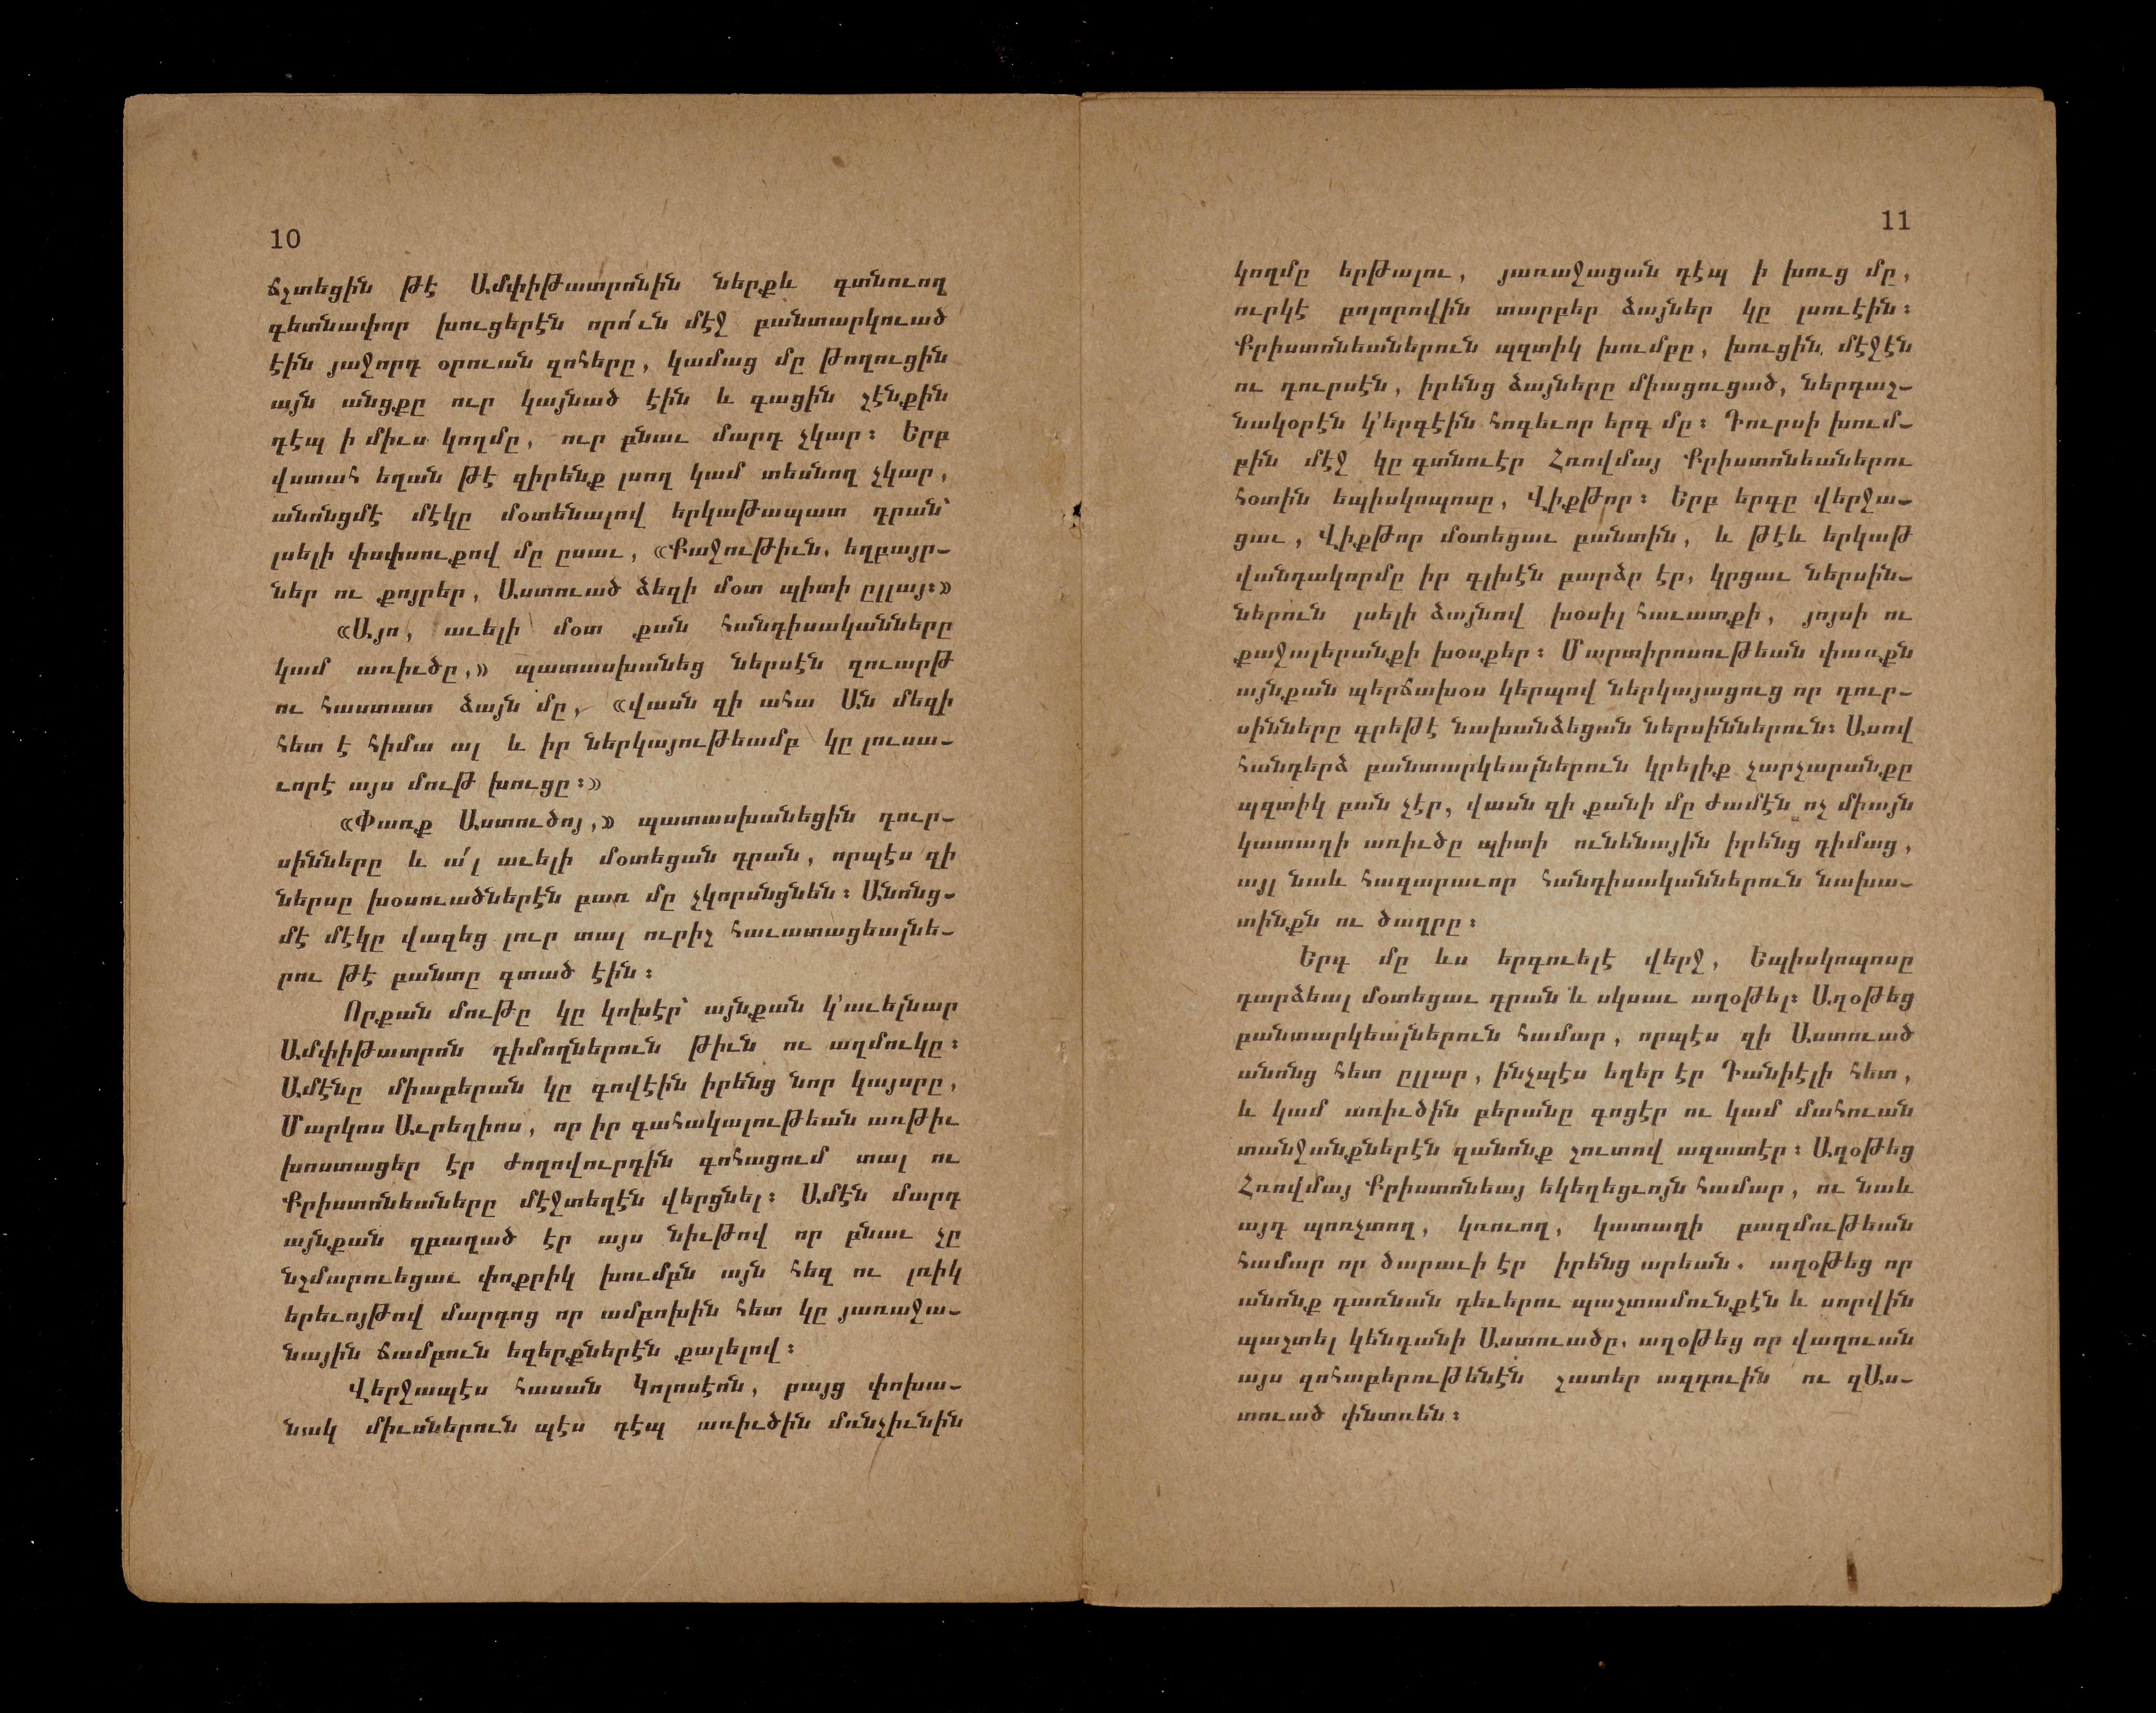 10
ճշտեցին թէ Ամփիթատրոնին ներքև գտնուող
գետնափոր խուցերէն որո՛ւն մէջ բանտարկուած
էին յաջորդ օրուան զոհերը, կամաց մը թողուցին
այն անցքը ուր կայնած էին և գացին շէնքին
դէպ ի միւս կողմը, ուր բնաւ մարդ չկար։ Երբ
վստահ եղան թէ զիրենք լսող կամ տեսնող չկար,
անոնցմէ մէկը մօտենալով երկաթապատ դրան՝
լսելի փսփսուքով մը ըսաւ, «Քաջութիւն, եղբայր-
ներ ու քոյրեր, Աստուած ձեզի մօտ պիտի ըլլայ։»
«Այո, աւելի մօտ քան հանդիսականները
կամ առիւծը,» պատասխանեց ներսէն զուարթ
ու հաստատ ձայն մը, «վասն զի ահա Ան մեզի
հետ է հիմա ալ և իր ներկայութեամբ կը լուսա-
ւորէ այս մութ խուցը։»
«Փառք Աստուծոյ,» պատասխանեցին դուր-
սինները և ա՛լ աւելի մօտեցան դրան, որպէս զի
ներսը խօսուածներէն բառ մը չկորսնցնեն։ Անոնց-
մէ մէկը վազեց լուր տալ ուրիշ հաւատացեալնե-
րու թէ բանտը գտած էին։
Որքան մութը կը կոխէր՝ այնքան կ՚աւելնար
Ամփիթատրոն դիմողներուն թիւն ու աղմուկը։
Ամէնը միաբերան կը գովէին իրենց նոր կայսրը,
Մարկոս Աւրեղիոս, որ իր գահակալութեան առթիւ
խոստացեր էր ժողովուրդին գոհացում տալ ու
Քրիստոնեաները մէջտեղէն վերցնել։ Ամէն մարդ
այնքան զբաղած էր այս նիւթով որ բնաւ չը
նշմարուեցաւ փոքրիկ խումբն այն հեզ ու լռիկ
երեւոյթով մարդոց որ ամբոխին հետ կը յառաջա-
նային ճամբուն եզերքներէն քալելով։
Վերջապէս հասան Կոլոսէոն, բայց փոխա-
նակ միւսներուն պէս դէպ առիւծին մռնչիւնին
11
կողմը երթալու, յառաջացան դէպ ի խուց մը,
ուրկէ բոլորովին տարբեր ձայներ կը լսուէին։
Քրիստոնեաներուն պզտիկ խումբը, խուցին մէջէն
ու դուրսէն, իրենց ձայները միացուցած, ներդաշ-
նակօրէն կ՚երգէին հոգեւոր երգ մը։ Դուրսի խում-
բին մէջ կը գտնուէր Հռովմայ Քրիստոնեաներու
հօտին եպիսկոպոսը, Վիքթոր։ Երբ երգը վերջա-
ցաւ, Վիքթոր մօտեցաւ բանտին, և թէև երկաթ
վանդակորմը իր գլխէն բարձր էր, կրցաւ ներսին-
ներուն լսելի ձայնով խօսիլ հաւատքի, յոյսի ու
քաջալերանքի խօսքեր։ Մարտիրոսութեան փառքն
այնքան պերճախօս կերպով ներկայացուց որ դուր-
սինները գրեթէ նախանձեցան ներսիններուն։ Ասով
հանդերձ բանտարկեալներուն կրելիք չարչարանքը
պզտիկ բան չէր, վասն զի քանի մը ժամէն ոչ միայն
կատաղի առիւծը պիտի ունենային իրենց դիմաց,
այլ նաև հազարաւոր հանդիսականներուն նախա-
տինքն ու ծաղրը։
Երգ մը ևս երգուելէ վերջ, Եպիսկոպոսը
դարձեալ մօտեցաւ դրան և սկսաւ աղօթել։ Աղօթեց
բանտարկեալներուն համար, որպէս զի Աստուած
անոնց հետ ըլլար, ինչպէս եղեր էր Դանիէլի հետ,
և կամ առիւծին բերանը գոցէր ու կամ մահուան
տանջանքներէն զանոնք շուտով ազատէր։ Աղօթեց
Հռովմայ Քրիստոնեայ եկեղեցւոյն համար, ու նաև
այդ պոռչտող, կռուող, կատաղի բազմութեան
համար որ ծարաւի էր իրենց արեան. աղօթեց որ
անոնք դառնան դեւերու պաշտամունքէն և սորվին
պաշտել կենդանի Աստուածը, աղօթեց որ վաղուան
այս զոհաբերութենէն շատեր ազդուին ու զԱս-
տուած փնտռեն։